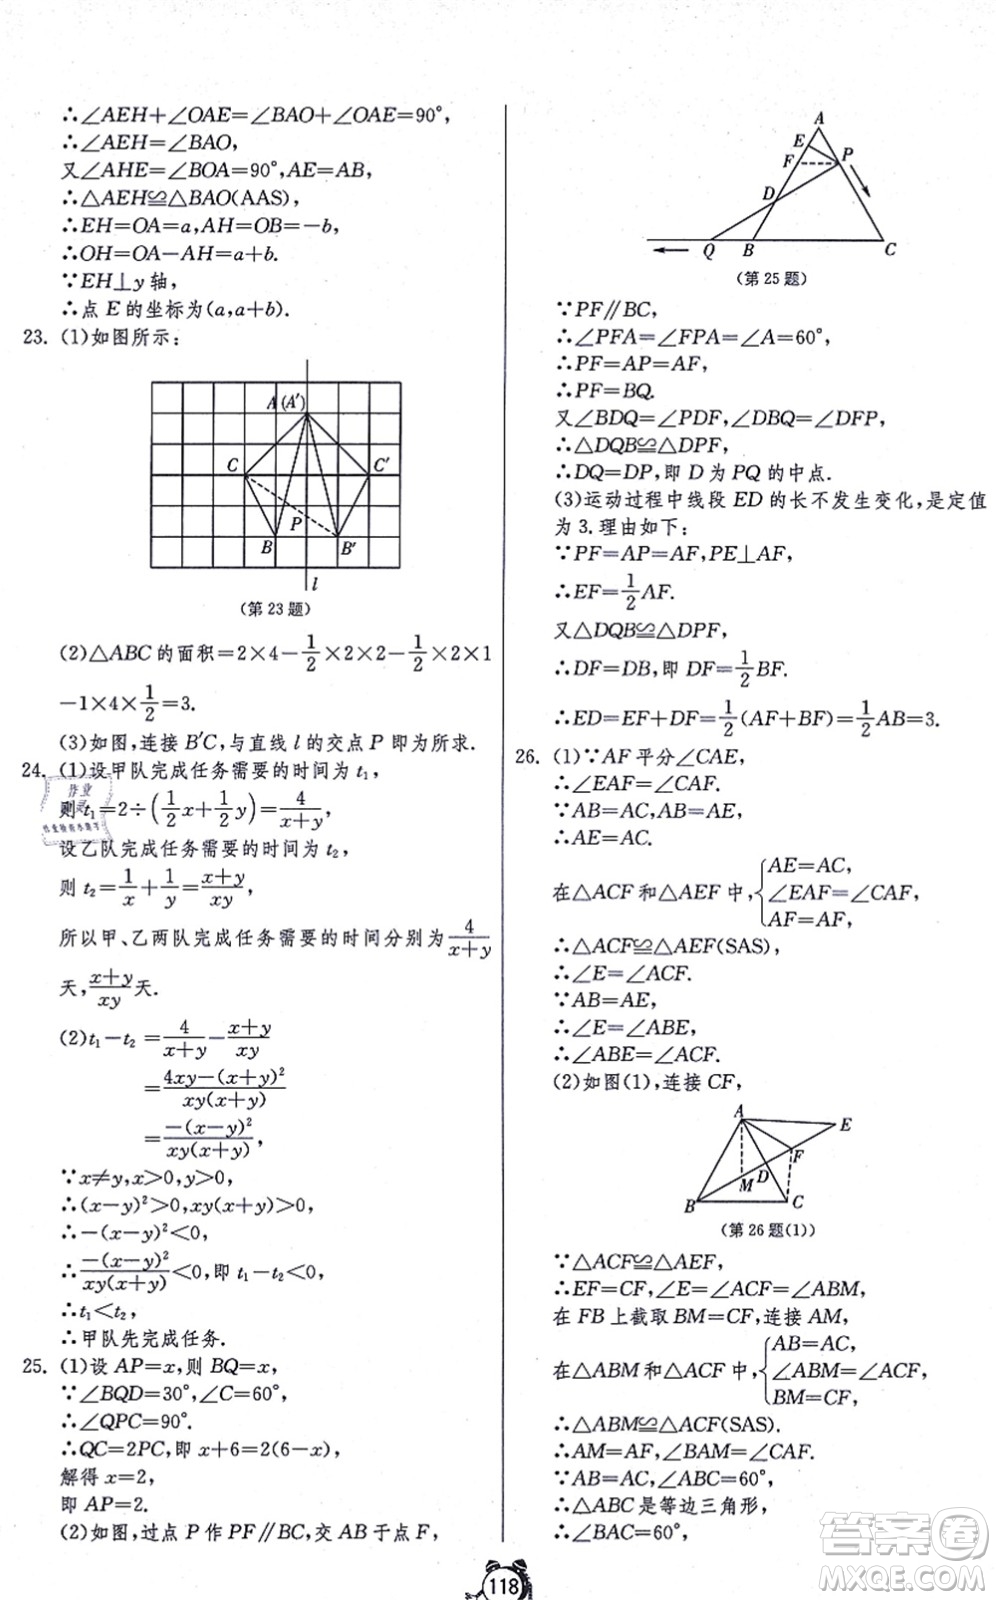 ∴∠AEH+∠OAE=∠BAO+∠OAE=90°,
∴∠AEH=∠BAO,
又∠AHE=∠BOA=90°,AE=AB,
∴△AEH≌△BAO(AAS),
∴EH=OA=a,AH=OB=-b,
∴OH=OA-AH=a+b.
∵EH⊥y轴,
∴点E的坐标为(a,a+b).
23. (1)如图所示:
A(A′)
C C′
P
B B′
l
(第23题)
(2)△ABC的面积=2×4-1/2×2×2-1/2×2×1
-1×4×1/2=3.
(3)如图,连接B′C,与直线l的交点P即为所求.
24. (1)设甲队完成任务需要的时间为t₁,
则t₁=2÷(1/2x+1/2y)=4/(x+y),
设乙队完成任务需要的时间为t₂,
则t₂=1/x+1/y=(x+y)/xy,
所以甲、乙两队完成任务需要的时间分别为4/(x+y)
天,(x+y)/xy天.
(2)t₁-t₂=4/(x+y)-(x+y)/xy
=(4xy-(x+y)²)/(xy(x+y))
=(-(x-y)²)/(xy(x+y)),
∵x≠y,x>0,y>0,
∴(x-y)²>0,xy(x+y)>0,
∴-(x-y)²<0,
∴(-(x-y)²)/(xy(x+y))<0,即t₁-t₂<0,
∴t₁<t₂,
∴甲队先完成任务.
25. (1)设AP=x,则BQ=x,
∵∠BQD=30°,∠C=60°,
∴∠QPC=90°.
∴QC=2PC,即x+6=2(6-x),
解得x=2,
即AP=2.
(2)如图,过点P作PF∥BC,交AB于点F,
A
E
F P
D
Q B C
(第25题)
∵PF∥BC,
∴∠PFA=∠FPA=∠A=60°,
∴PF=AP=AF,
∴PF=BQ.
又∠BDQ=∠PDF,∠DBQ=∠DFP,
∴△DQB≌△DPF,
∴DQ=DP,即D为PQ的中点.
(3)运动过程中线段ED的长不发生变化,是定值
为3.理由如下:
∵PF=AP=AF,PE⊥AF,
∴EF=1/2AF.
又△DQB≌△DPF,
∴DF=DB,即DF=1/2BF.
∴ED=EF+DF=1/2(AF+BF)=1/2AB=3.
26. (1)∵AF平分∠CAE,
∴∠EAF=∠CAF.
∵AB=AC,AB=AE,
∴AE=AC.
在△ACF和△AEF中,{AE=AC,
∠EAF=∠CAF,
AF=AF,
∴△ACF≌△AEF(SAS),
∴∠E=∠ACF.
∵AB=AE,
∴∠E=∠ABE,
∴∠ABE=∠ACF.
(2)如图(1),连接CF,
A E
F
M D
B C
(第26题(1))
∵△ACF≌△AEF,
∴EF=CF,∠E=∠ACF=∠ABM,
在FB上截取BM=CF,连接AM,
在△ABM和△ACF中,{AB=AC,
∠ABM=∠ACF,
BM=CF,
∴△ABM≌△ACF(SAS).
∴AM=AF,∠BAM=∠CAF.
∵AB=AC,∠ABC=60°,
∴△ABC是等边三角形,
∴∠BAC=60°,
118
答案卷
MXQE.COM